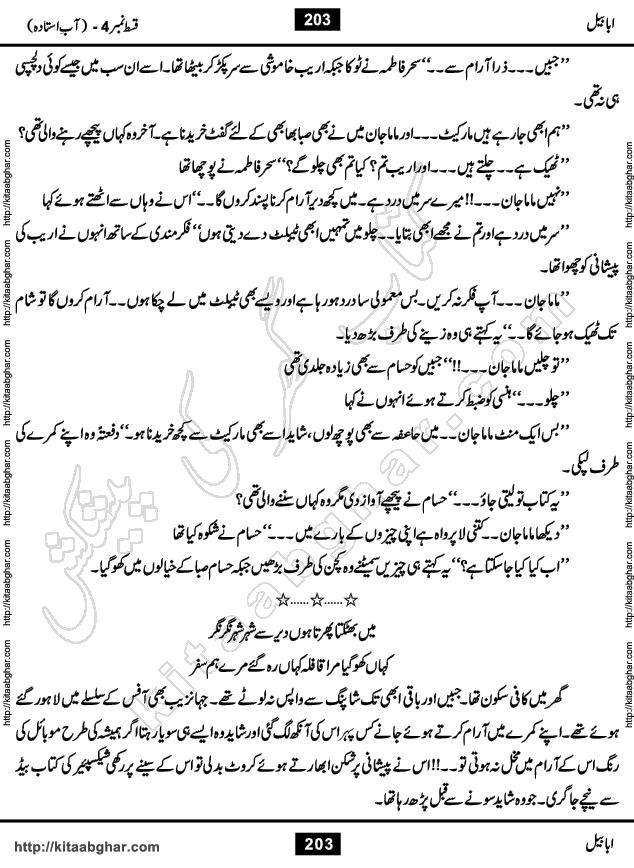 ابابیل
203
قسط نمبر 4 - ( آب استادہ )
’’جبیں ۔۔۔ ذرا آرام سے ۔۔‘‘ سحر فاطمہ نے ٹوکا جبکہ اریب خاموشی سے سر پکڑ کر بیٹھا تھا۔ اسے ان سب میں جیسے کوئی دلچسپی
ہی نہ تھی۔
’’ہم ابھی جا رہے ہیں مارکیٹ ۔۔۔ اور ماما جان میں نے بھی صبا بھابھی کے لئے گفٹ خریدنا ہے۔ آخر وہ کہاں پیچھے رہنے والی تھی؟
’’ٹھیک ہے ۔۔ چلتے ہیں ۔۔۔ اور اریب تم؟ کیا تم بھی چلو گے؟‘‘ سحر فاطمہ نے پوچھا تھا
’’نہیں ماما جان ۔۔۔!! میرے سر میں درد ہے۔ میں کچھ دیر آرام کرنا پسند کروں گا ۔۔‘‘ اس نے وہاں سے اٹھتے ہوئے کہا
’’سر میں درد ہے اور تم نے مجھے ابھی بتایا ۔۔ چلو میں تمہیں ابھی ٹیبلٹ دے دیتی ہوں‘‘ فکر مندی کے ساتھ انہوں نے اریب کی
پیشانی کو چھوا تھا۔
’’ماما جان ۔۔۔ آپ فکر نہ کریں۔ بس معمولی سا درد ہو رہا ہے اور ویسے بھی ٹیبلٹ میں لے چکا ہوں ۔۔ آرام کروں گا تو شام
تک ٹھیک ہو جائے گا ۔۔‘‘ یہ کہتے ہی وہ زینے کی طرف بڑھ دیا۔
’’تو چلیں ماما جان ۔۔۔!!‘‘ جبیں کو حسام سے بھی زیادہ جلدی تھی
’’چلو ۔۔۔‘‘ ہنسی کو ضبط کرتے ہوئے انہوں نے کہا
’’بس ایک منٹ ماما جان ۔۔ میں حاعفہ سے بھی پوچھ لوں، شاید اسے بھی مارکیٹ سے کچھ خریدنا ہو۔‘‘ دفعتہً وہ اپنے کمرے کی
طرف لپکی۔
’’یہ کتاب تو لیتی جاؤ ۔۔۔‘‘ حسام نے پیچھے آواز دی مگر وہ کہاں سننے والی تھی؟
’’دیکھا ماما جان ۔۔ کتنی لا پرواہ ہے اپنی چیزوں کے بارے میں ۔۔۔‘‘ حسام نے شکوہ کیا تھا
’’اب کیا کیا جا سکتا ہے؟‘‘ یہ کہتے ہی چیزیں سمیٹنے وہ کچن کی طرف بڑھیں جبکہ حسام صبا کے خیالوں میں کھو گیا۔
☆......☆......☆
میں بھٹکتا پھرتا ہوں دیر سے شہر شہر نگر نگر
کہاں کھو گیا مرا قافلہ کہاں رہ گئے مرے ہم سفر
گھر میں کافی سکون تھا۔ جبیں اور باقی ابھی تک شاپنگ سے واپس نہ لوٹے تھے۔ جہانزیب بھی آفس کے سلسلے میں لاہور گئے
ہوئے تھے۔ اپنے کمرے میں آرام کرتے ہوئے جانے کس پہر اس کی آنکھ لگ گئی اور شاید وہ ایسے ہی سویا رہتا اگر ہمیشہ کی طرح موبائل کی
رنگ اس کے آرام میں مخل نہ ہوتی تو ۔۔!! اس نے پیشانی پر شکن ابھارتے ہوئے کروٹ بدلی تو اس کے سینے پر رکھی شیکسپئیر کی کتاب بیڈ
سے نیچے جا گری۔ جو وہ شاید سونے سے قبل پڑھ رہا تھا۔
کتاب گھر کی پیشکش
kitaabghar.com
http://kitaabghar.com
http://kitaabghar.com
http://kitaabghar.com
http://kitaabghar.com
http://kitaabghar.com
http://kitaabghar.com
http://kitaabghar.com
http://kitaabghar.com
http://kitaabghar.com
http://kitaabghar.com
http://kitaabghar.com
http://kitaabghar.com
ابابیل
203
http://kitaabghar.com